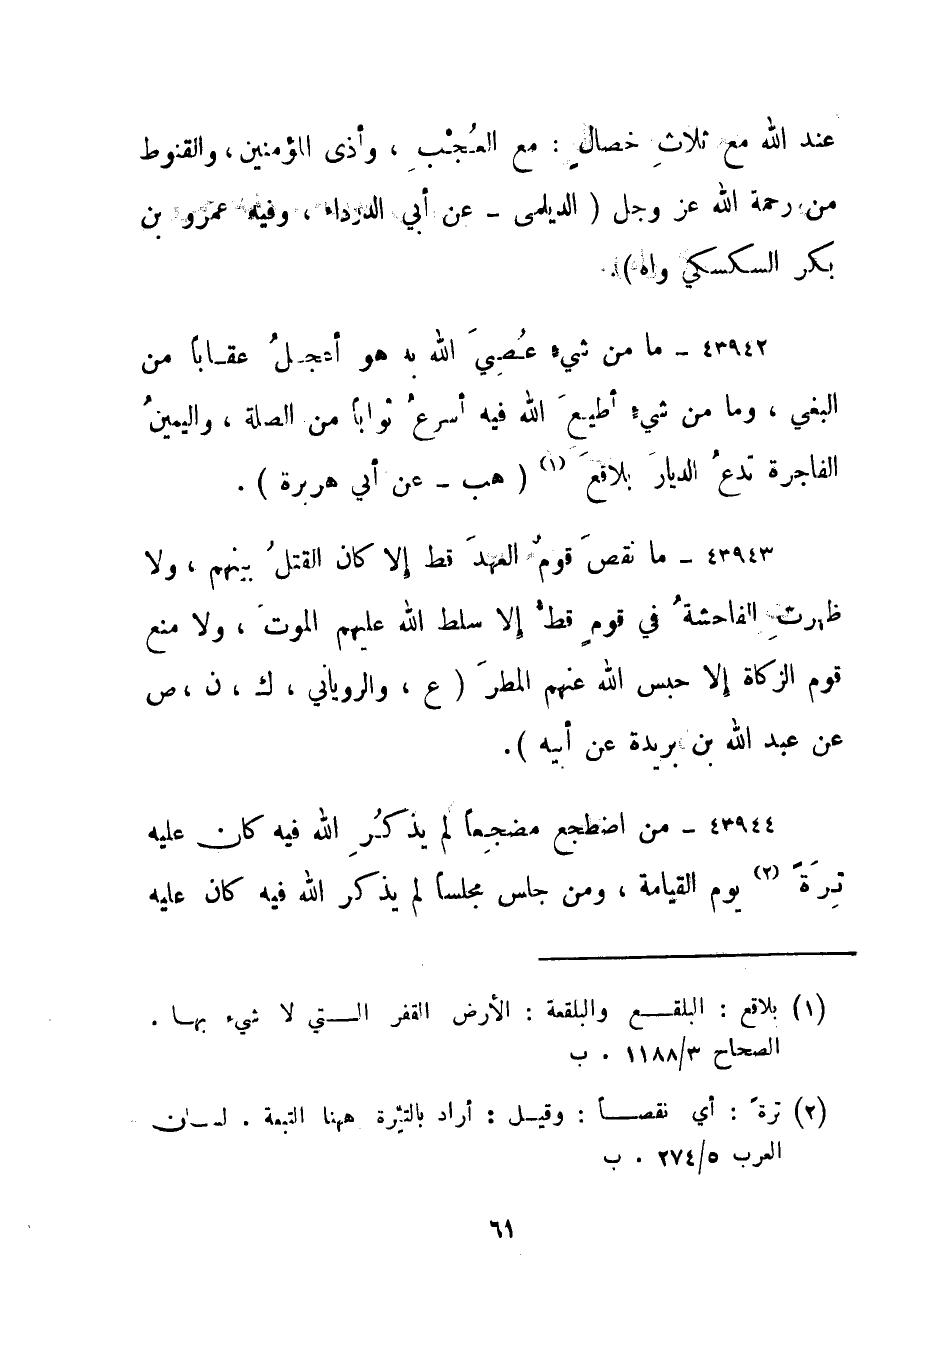 عند الله مع ثلاثِ خصالٍ : مع العُجْبِ ، وأذى المؤمنين ، والقنوط
من رحمة الله عز وجل ( الديلمى ـ عن أبي الدرداء ، وفيه عمرو بن
بكر السكسكي واه ) .
٤٣٩٤٢ ـ ما من شيءٍ عُصِيَ الله به هو أعجلُ عقاباً من
البغي ، وما من شيءٍ أطيعَ الله فيه أسرعُ ثواباً من الصلة ، واليمينُ
الفاجرة تدعُ الديارَ بلاقعَ (١) ( هب ـ عن أبي هريرة ) .
٤٣٩٤٣ ـ ما نقصَ قومٌ العهدَ قط إلا كان القتلُ بينهم ، ولا
ظهرتِ الفاحشةُ في قومٍ قطُّ إلا سلط الله عليهم الموتَ ، ولا منع
قوم الزكاة إلا حبس الله عنهم المطرَ ( ع ، والروياني ، ك ، ن ، ص
عن عبد الله بن بريدة عن أبيه ) .
٤٣٩٤٤ ـ من اضطجع مضجِعاً لم يذكُرِ الله فيه كان عليه
تِرَةً (٢) يوم القيامة ، ومن جلس مجلساً لم يذكر الله فيه كان عليه
(١) بلاقع : البلقع والبلقعة : الأرض القفر التي لا شيء بها .
الصحاح ١١٨٨/٣ . ب
(٢) ترةً : أي نقصاً : وقيل : أراد بالتِّرة ههنا التبعة . لسان
العرب ٢٧٤/٥ . ب
٦١